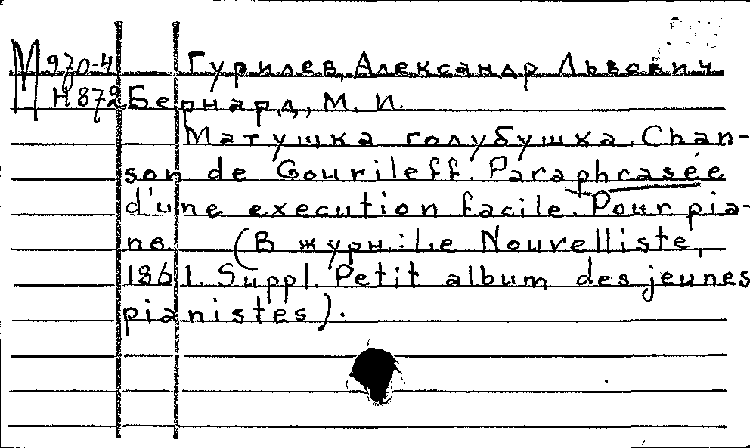 М 970-4 Гурилев, Александр Львович
Н872 Бернард, М. И.
Матушка голубушка. Chan-
son de Gourileff. Paraphrasée
d'une execution facile. Pour pia-
no. (В журн.: Le Nouvelliste,
1861. Suppl. Petit album des jeunes
pianistes).